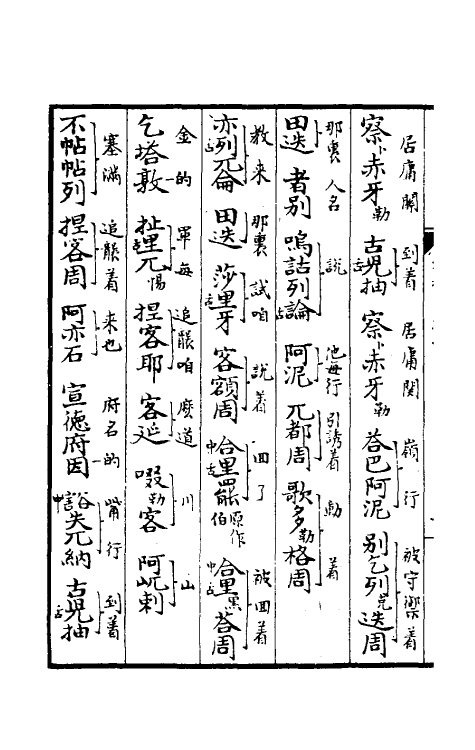 居庸關 到着 居庸關 嶺行 被守禦着
察卜赤牙勒 古舌兒抽 察卜赤牙勒 荅巴阿泥 別乞列克迭周
那裏 人名 說 他每行 引誘着 動着
田迭 者別 嗚詁列舌論 阿泥 兀都周 歌多勒格周
教來 那裏 試咱 說着 回了 被回着
亦舌列兀侖 田迭 莎舌里牙 客額周 中合舌里罷原作伯 中合舌里黑荅周
金的 軍每 追襲咱 麽道 川 山
乞塔敦 扯舌里兀惕 捏客耶 客延 啜勒客 阿屼剌
塞滿 追襲着 來也 府名的 嘴行 到着
不帖帖列 捏客周 阿亦石 宣德府因 中豁失兀納 古舌兒抽